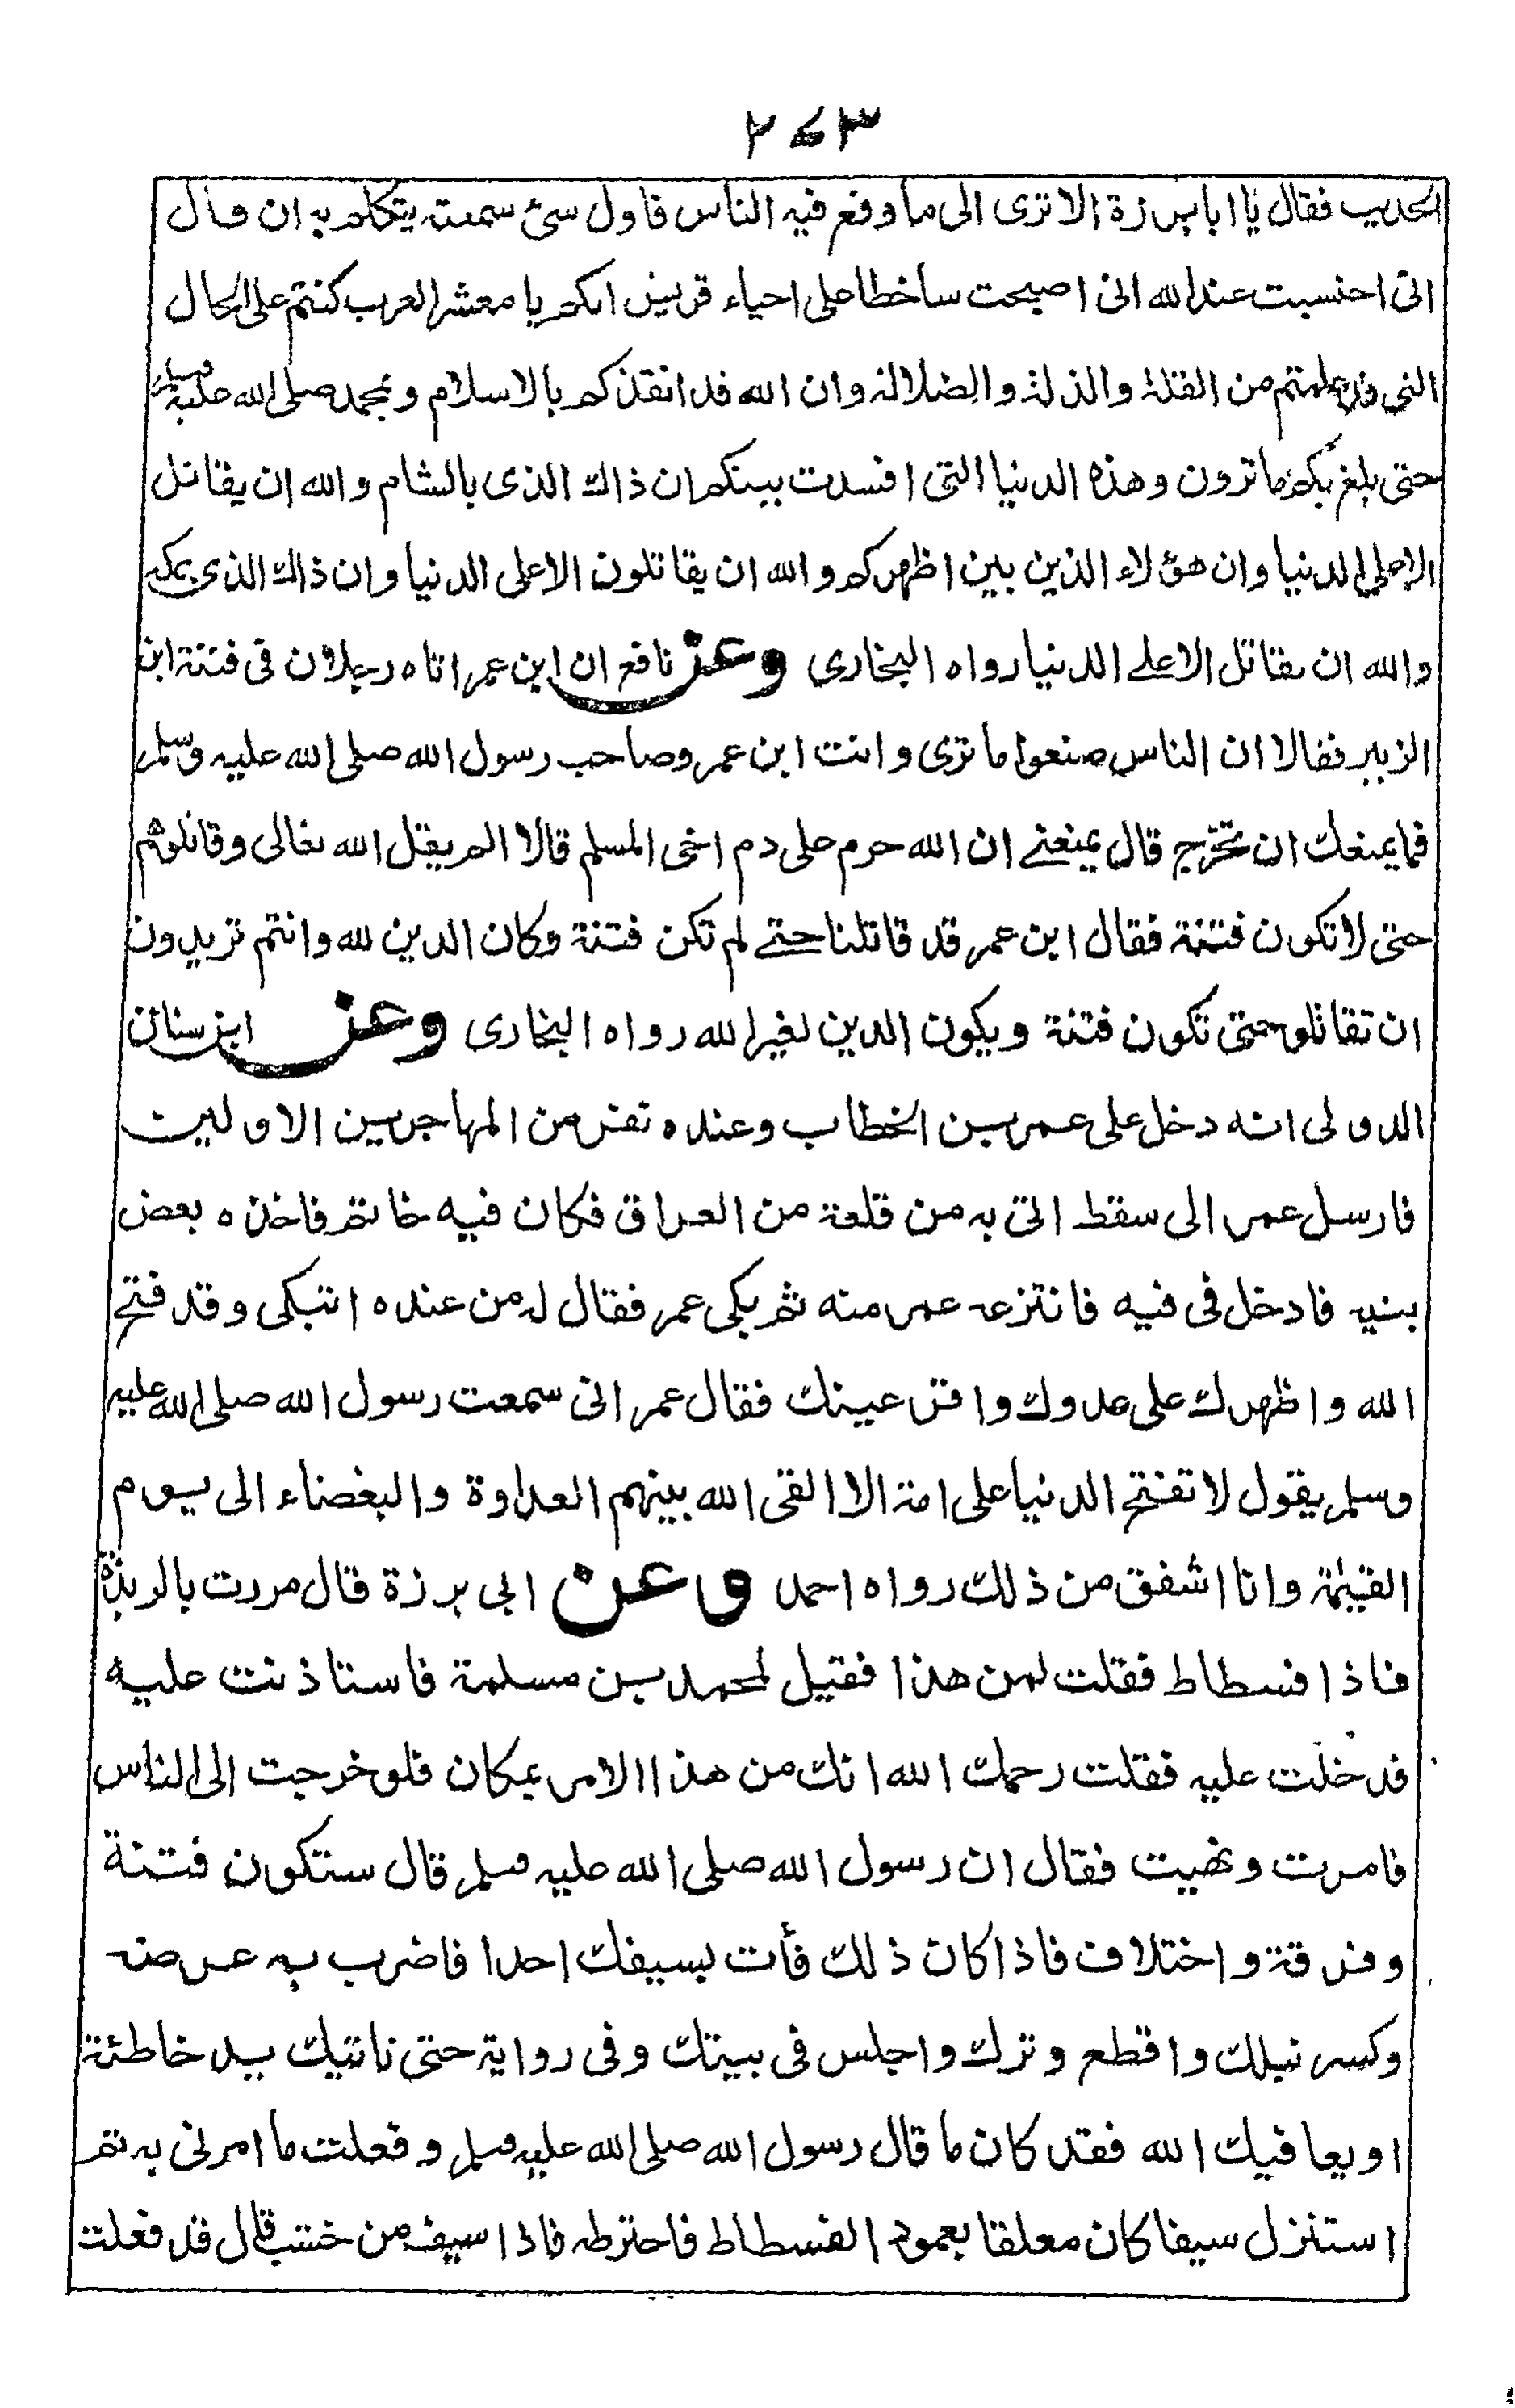 ٢٧٣
الحديث فقال يا ابا برزة الا ترى الى ما وقع فيه الناس فاول شئ سمعته يتكلم به ان قال
انى احتسبت عند الله انى اصبحت ساخطا على احياء قريش انكم يا معشر العرب كنتم على الحال
التى قد علمتم من القلة والذلة والضلالة وان الله قد انقذكم بالاسلام وبمحمد صلى الله عليه وسلم
حتى بلغ بكم ما ترون وهذه الدنيا التى افسدت بينكم ان ذاك الذى بالشام والله ان يقاتل
الا على الدنيا وان هؤلاء الذين بين اظهركم والله ان يقاتلون الا على الدنيا وان ذاك الذى بمكه
والله ان يقاتل الا على الدنيا رواه البخارى وعن نافع ان ابن عمر اتاه رجلان فى فتنة ابن
الزبير فقالا ان الناس صنعوا ما ترى وانت ابن عمر وصاحب رسول الله صلى الله عليه وسلم
فما يمنعك ان تخرج قال يمنعنے ان الله حرم على دم اخى المسلم قالا الم يقل الله تعالى وقاتلوهم
حتى لا تكون فتنة فقال ابن عمر قد قاتلنا حتے لم تكن فتنة وكان الدين لله وانتم تريدون
ان تقاتلو حتى تكون فتنة ويكون الدين لغير الله رواه البخارى وعن ابن سنان
الدولى انه دخل على عمر بن الخطاب وعنده نفر من المهاجرين الاولين
فارسل عمر الى سقط اتى به من قلعة من العراق فكان فيه خاتم فاخذه بعض
بنيه فادخل فى فيه فانتزعه عمر منه ثم بكى عمر فقال له من عنده اتبكى وقد فتح
الله واظهرك على عدوك واقر عينك فقال عمر انى سمعت رسول الله صلى الله عليه
وسلم يقول لا تفتح الدنيا على امة الا القى الله بينهم العداوة والبغضاء الى يوم
القيٰمة وانا اشفق من ذلك رواه احمد وعن ابى برزة قال مررت بالربذة
فاذا فسطاط فقلت لمن هذا فقيل لمحمد بن مسلمة فاستاذنت عليه
فدخلت عليه فقلت رحمك الله انك من هذا الامر بمكان فلو خرجت الى الناس
فامرت ونهيت فقال ان رسول الله صلى الله عليه وسلم قال ستكون فتنة
وفرقة واختلاف فاذا كان ذلك فأت بسيفك احدا فاضرب به عرضه
وكسر نبلك واقطع وترك واجلس فى بيتك وفى رواية حتى تاتيك يد خاطئة
او يعافيك الله فقد كان ما قال رسول الله صلى الله عليه وسلم وفعلت ما امرنى به ثم
استنزل سيفا كان معلقا بعمود الفسطاط فاخترطه فاذا سيف من خشب قال قد فعلت